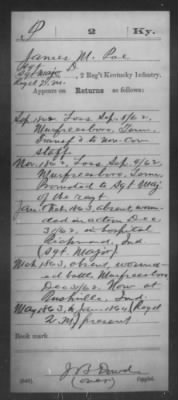 P 2 Ky.
James M. Poe
Sgt. D
Sgt Maj, 2 Reg't Kentucky Infantry.
Appears on
Returns as follows:
Sep. 1862, Loss Sep. 8/62,
Murfreesboro, Tenn.
Transf'd to non-com
staff
Nov. 1862, Loss Sep. 9/62
Murfreesboro, Tenn.
Promoted to Sgt Maj
of the regt
1863, absent, woun-
ded in action Dec
31/62, in hospital
Richmond, Ind
(Sgt. Major)
Mch 1863, absent, wound-
ed battle Murfreesboro
Dec 31/62. Now at
Rushville, Ind.
May 1863, 1864 (Regtl
Q. M.) present
Book mark
(over)
Copyist.